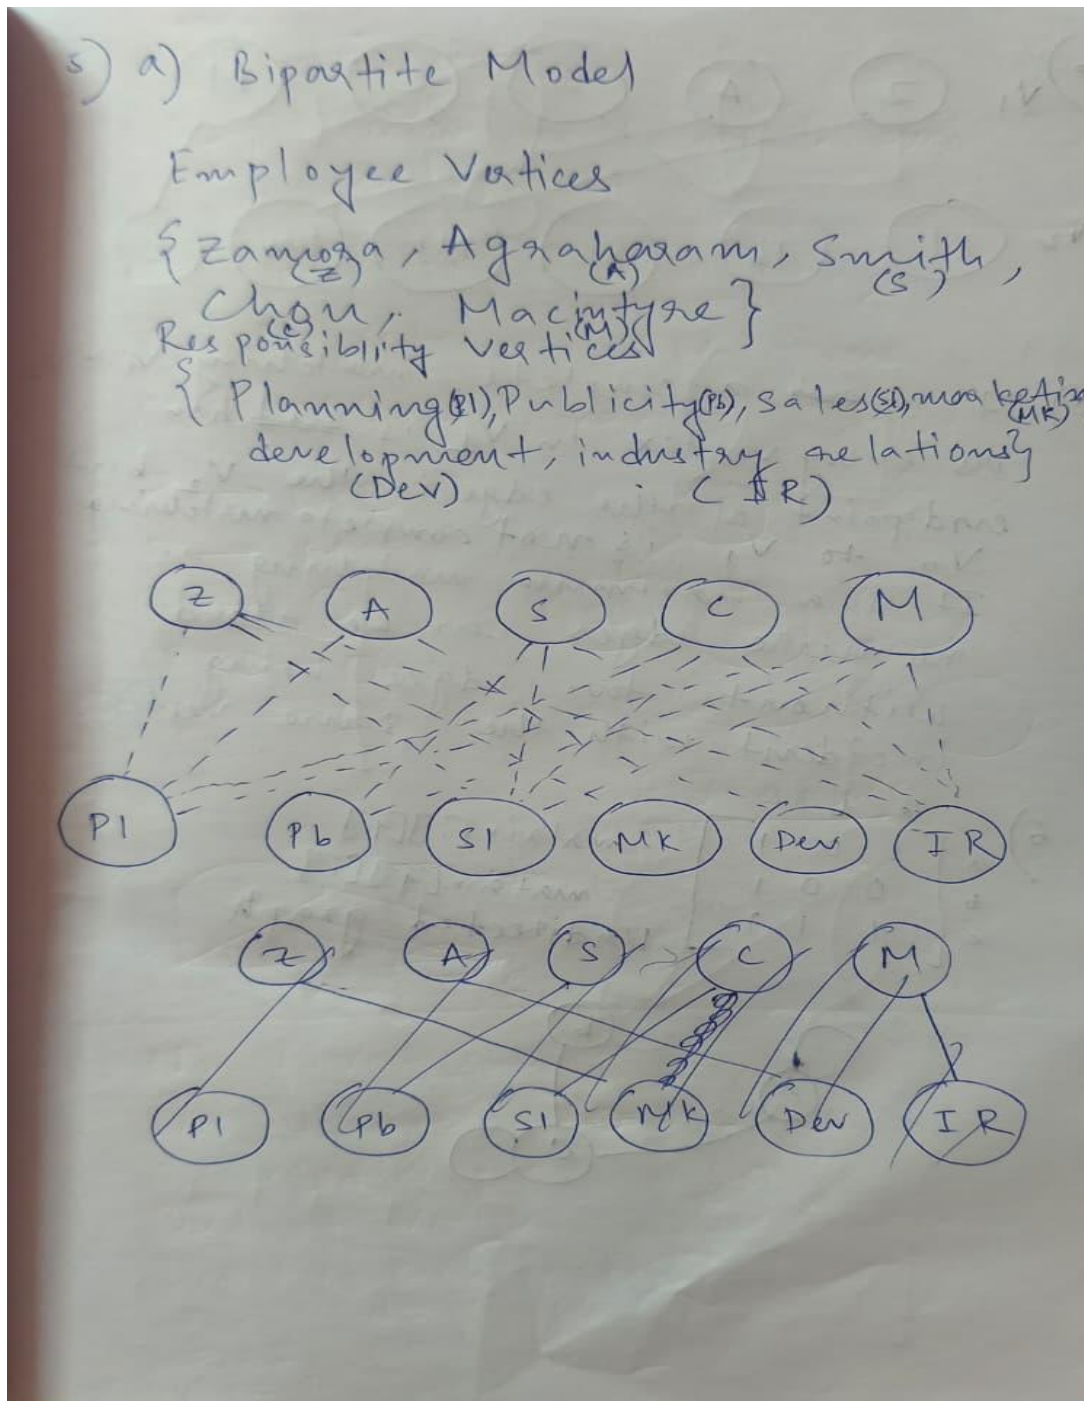 5) a) Bipartite Model
Employee Vertices
{ Zamora, Agraharam, Smith,
(Z) (A) (S)
Chou, Macintyre }
(C) (M)
Responsiblity Vertices
{ Planning(Pl), Publicity(Pb), Sales(Sl), marketin
(MK)
development, industry relations}
(Dev) (IR)
Z A S C M
Pl Pb Sl MK Dev IR
Z A S C M
Pl Pb Sl MK Dev IR